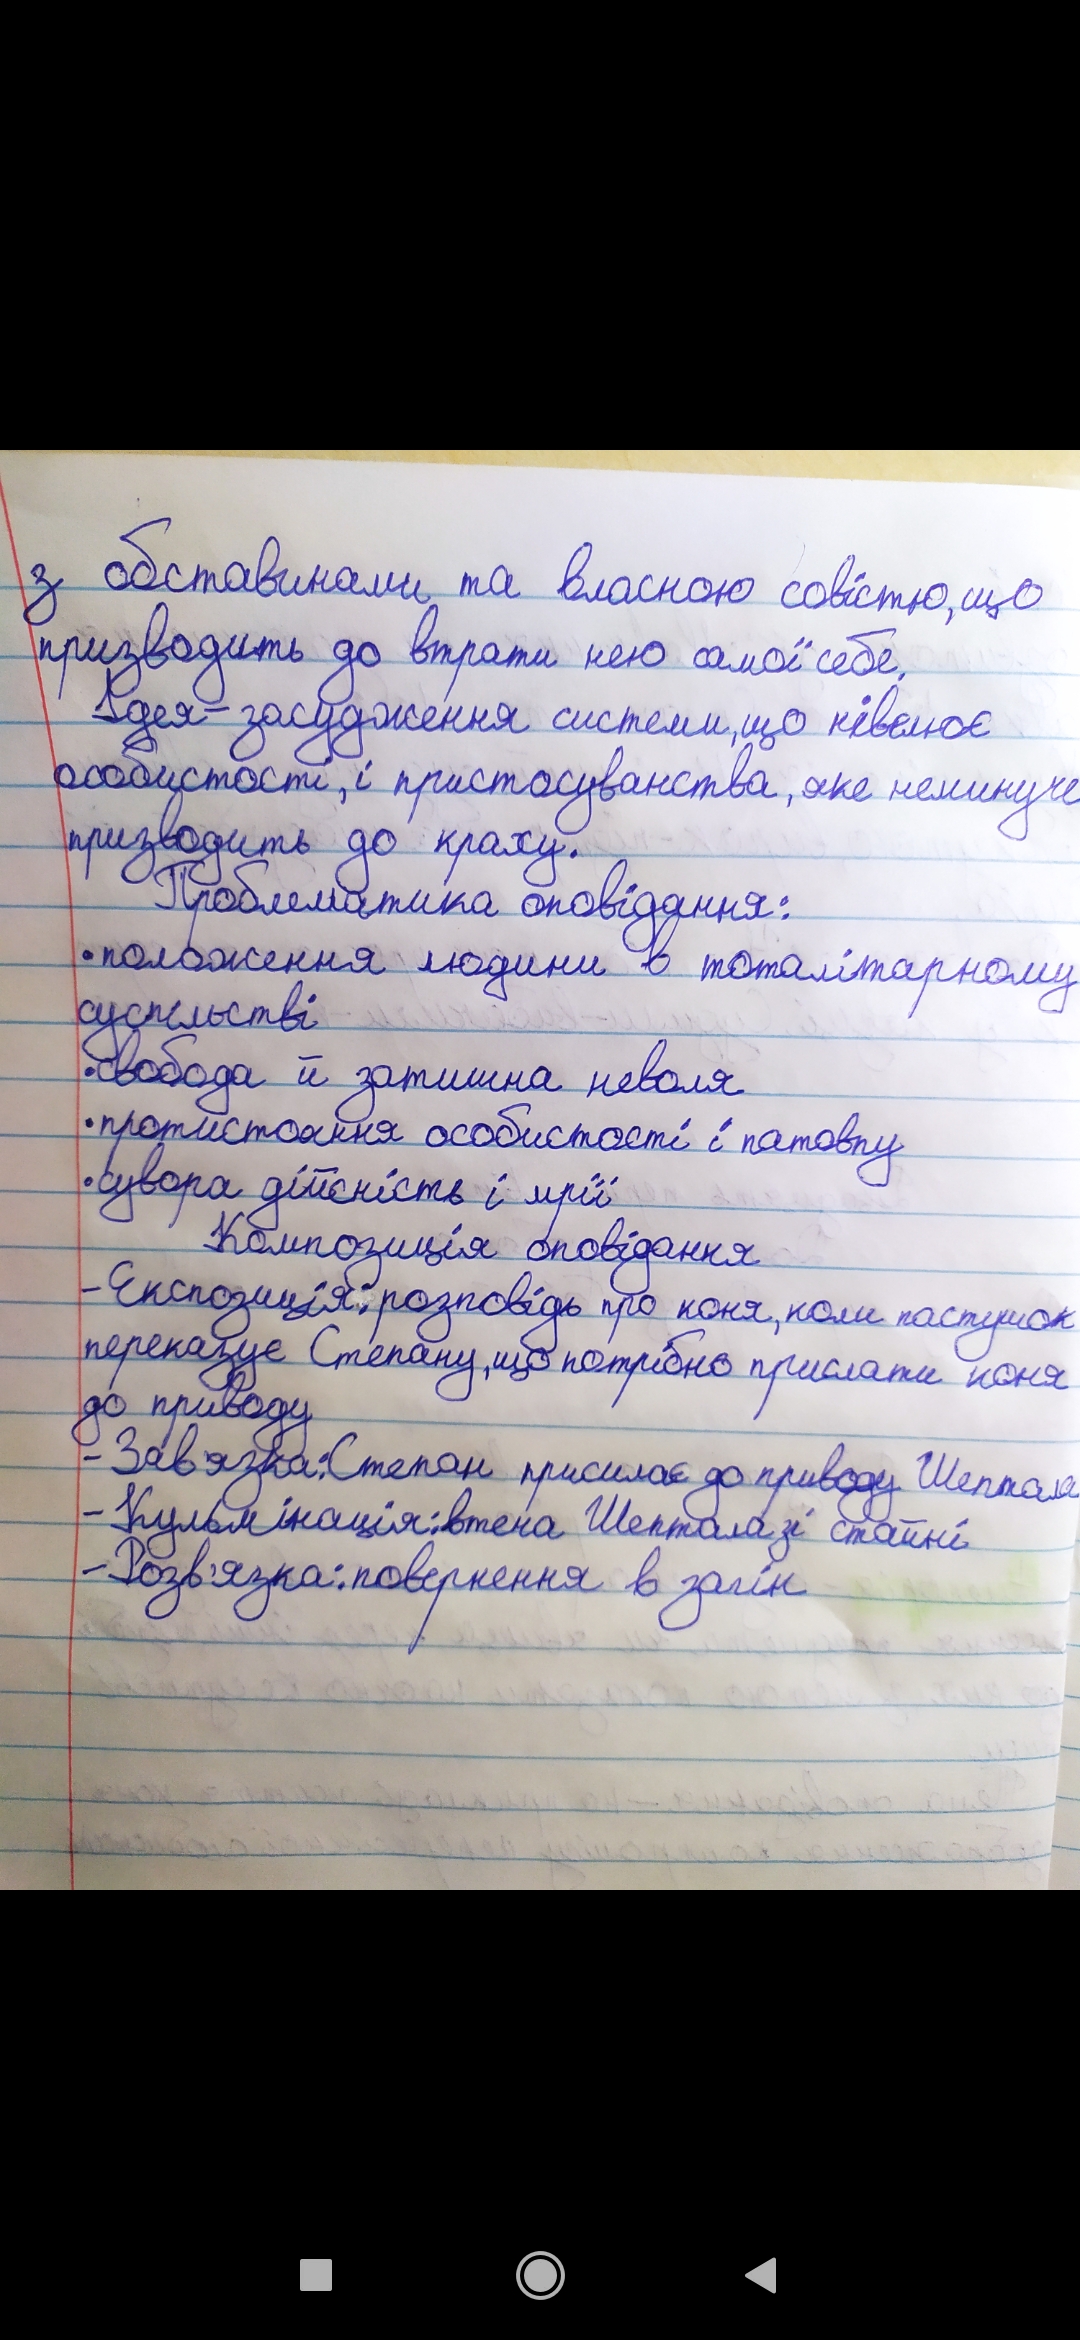 з обставинами та власною совістю, що
призводить до втрати нею самої себе.
Ідея – засудження системи, що нівелює
особистості, і пристосуванства, яке неминуче
призводить до краху.
Проблематика оповідання:
•положення людини в тоталітарному
суспільстві
•свобода й затишна неволя
•протистояння особистості і натовпу
•сувора дійсність і мрії
Композиція оповідання
- Експозиція: розповідь про коня, коли пастушок
переказує Степану, що потрібно прислати коня
до приводу
- Зав'язка: Степан присилає до приводу Шептала
- Кульмінація: втеча Шептала зі стайні
- Розв'язка: повернення в загін